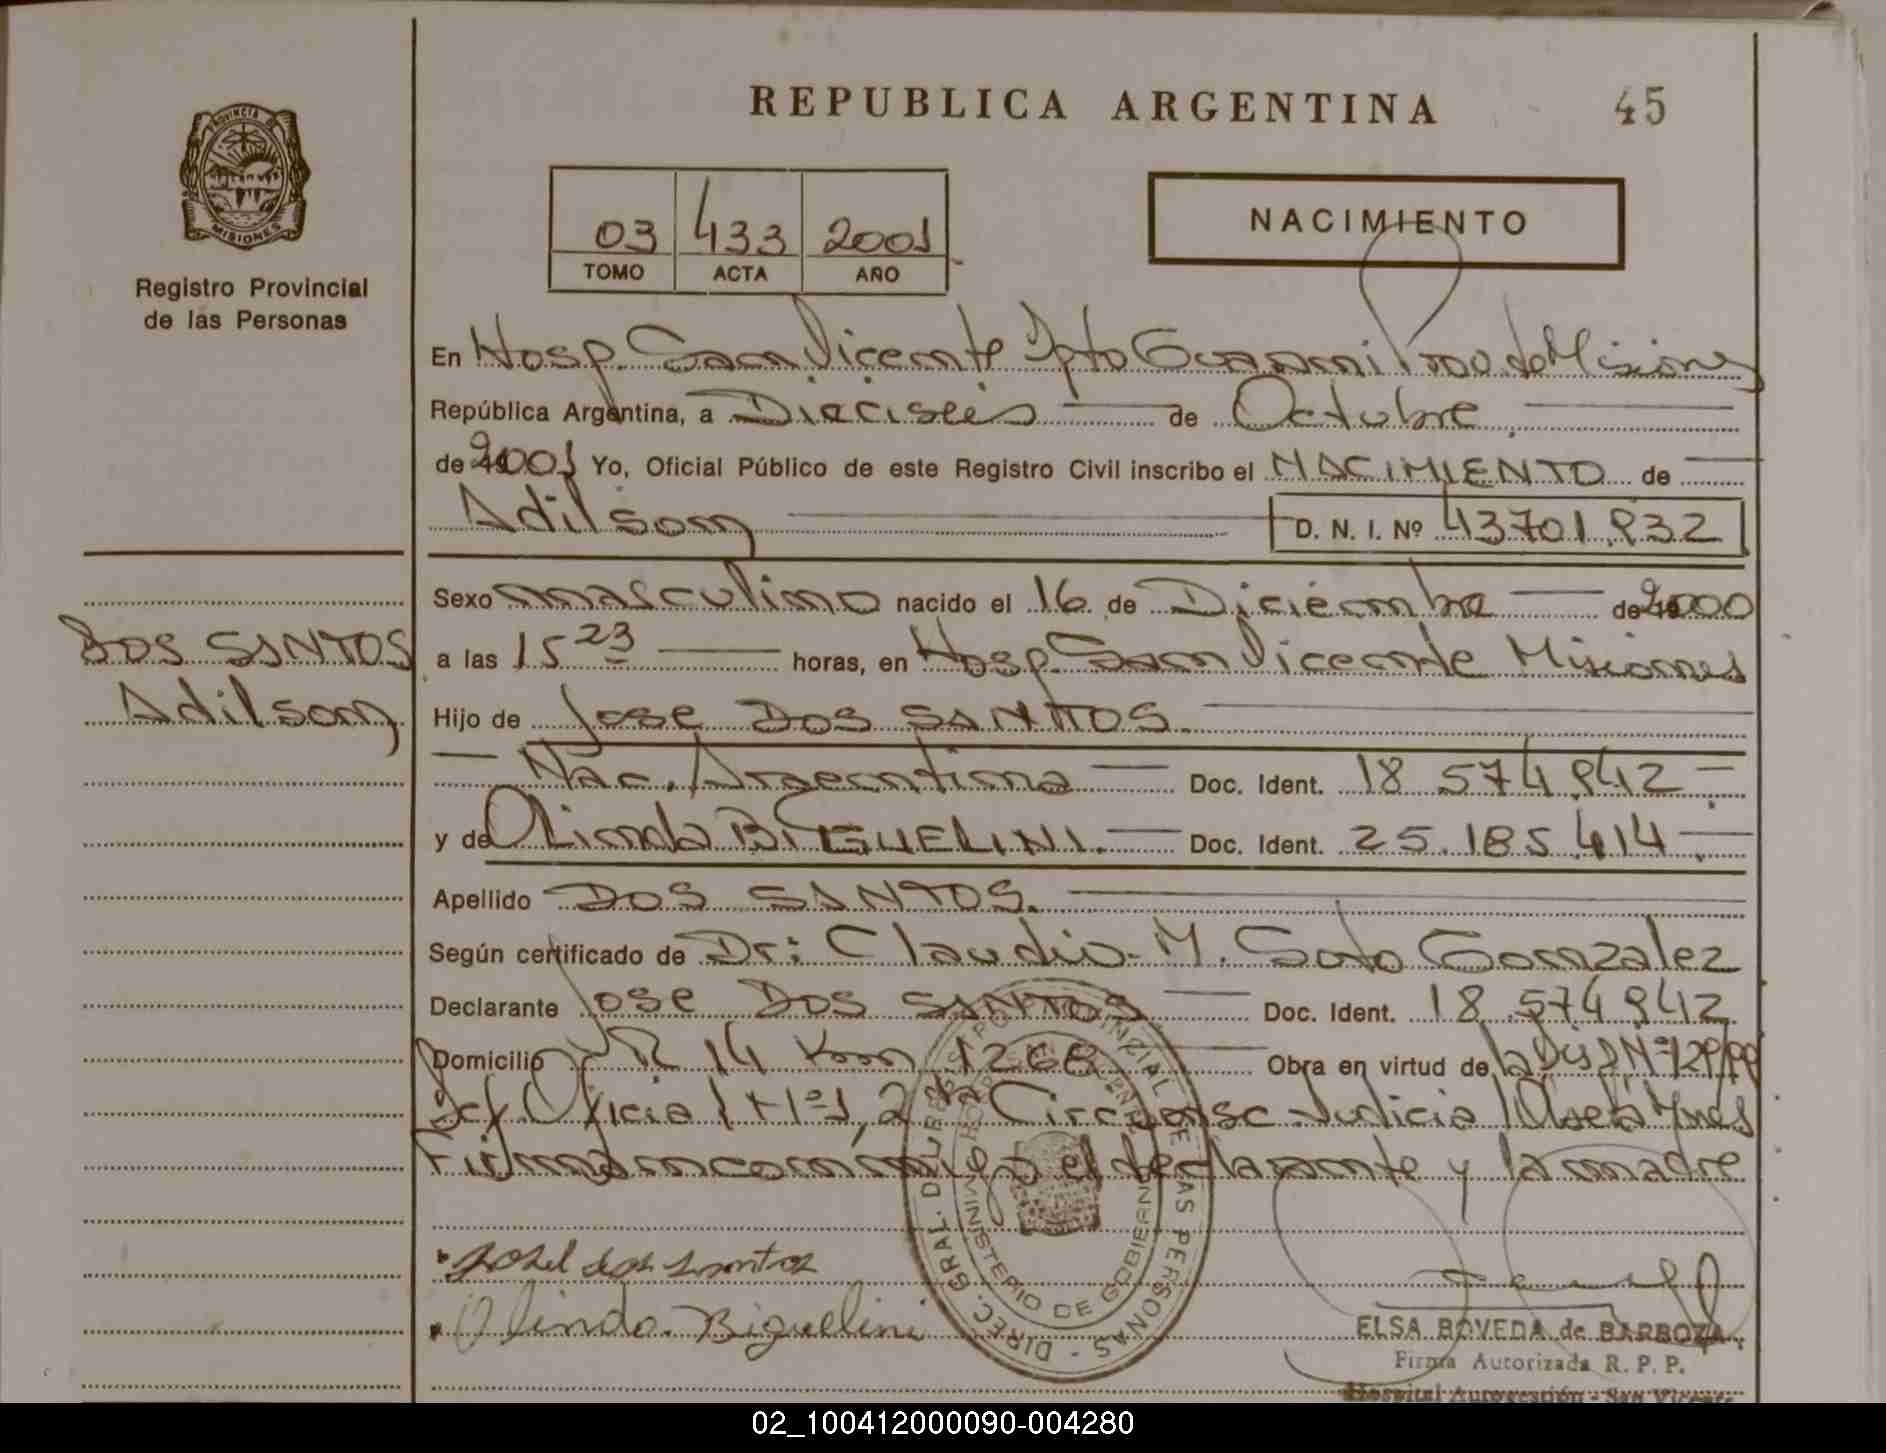 REPUBLICA ARGENTINA
45
PROVINCIA DE
MISIONES
Registro Provincial
de las Personas
03 433 2001
TOMO ACTA AÑO
NACIMIENTO
En Hosp. San Vicente Dpto Guarani Pcia de Misiones
República Argentina, a Dieciseis de Octubre
de 2001 Yo, Oficial Público de este Registro Civil inscribo el NACIMIENTO de
Adilson D. N. I. Nº 43701.932
Sexo masculino nacido el 16 de Diciembre de 2000
DOS SANTOS
a las 15 23 horas, en Hosp. San Vicente Misiones
Adilson
Hijo de Jose DOS SANTOS
Nac. Argentina Doc. Ident. 18.574.942
y de Olinda BIGUELINI. Doc. Ident. 25.185.414
Apellido DOS SANTOS.
Según certificado de Dr: Claudio M. Soto Gonzalez
Declarante Jose DOS SANTOS Doc. Ident. 18.574.942
Domicilio R 14 Km 1268 Obra en virtud de la Nº 129/99
Oficial Nº 1, 2da Circunsc. Judicial
Firman conmigo el declarante y la madre
dos santos
Olinda Biguelini
DIREC. GRAL. DEL REGISTRO PROVINCIAL DE LAS PERSONAS
MINISTERIO DE GOBIERNO
ELSA BOVEDA de BARBOZA
Firma Autorizada R. P. P.
Hospital Autogestión - San Vicente
02_100412000090-004280